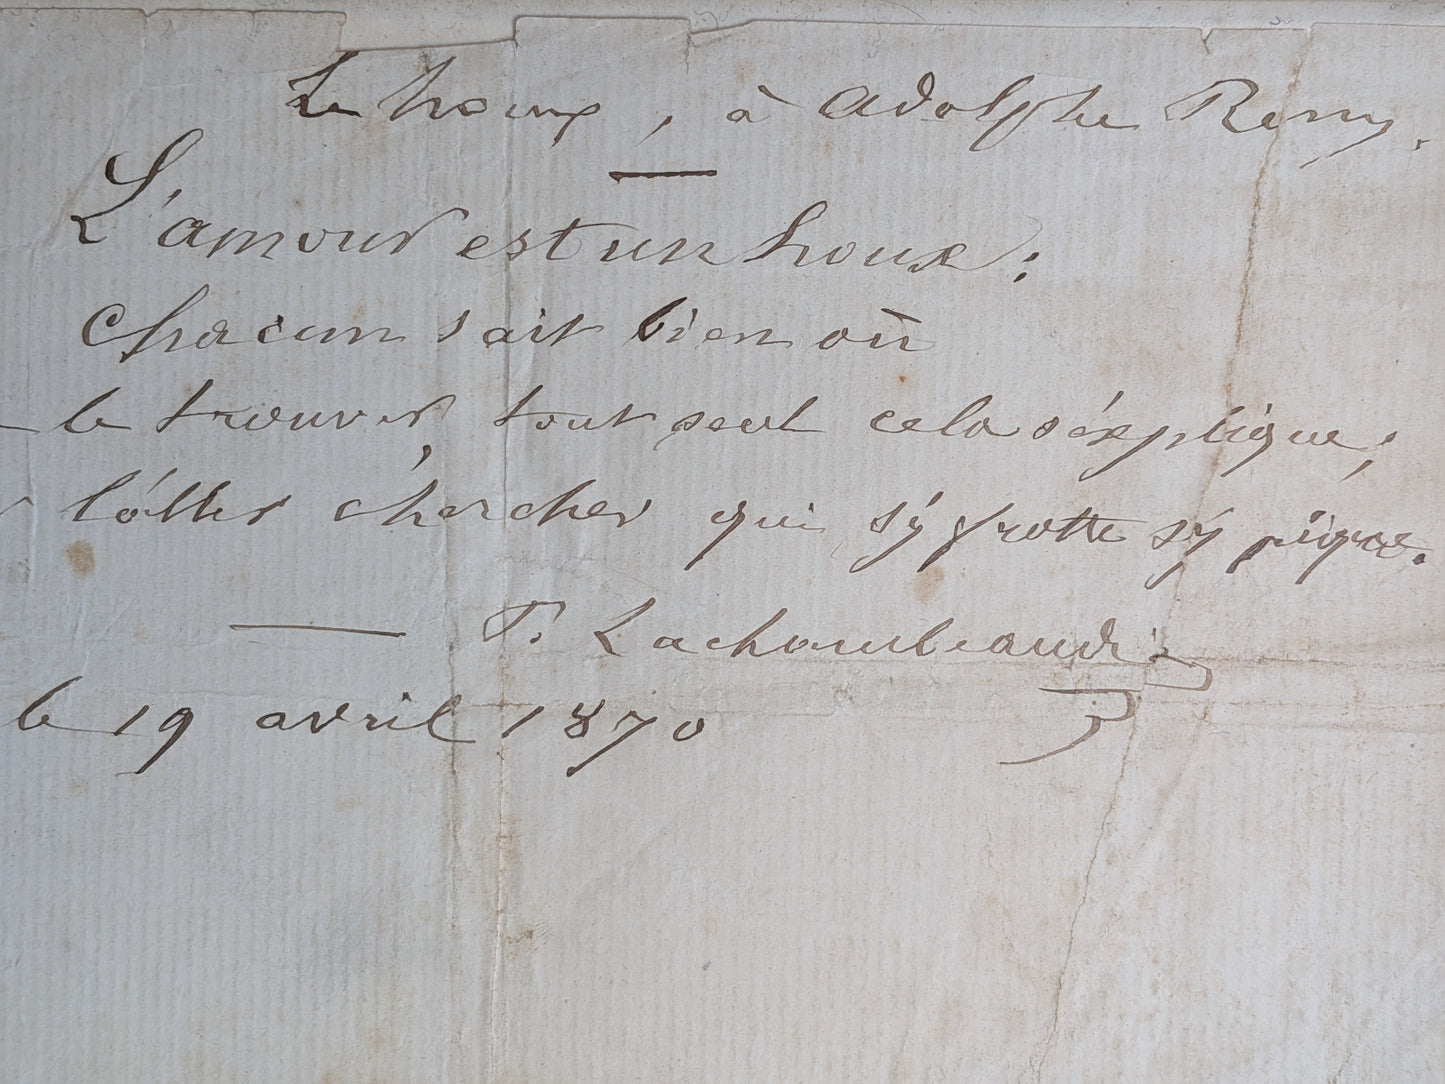 Le houx, à Adolphe Remy.
L'amour est un houx:
chacun sait bien où
le trouver, tout seul cela s'éxplique;
l'aller chercher qui s'y frotte s'y pique.
P. Lachambeaudie
le 19 avril 1870